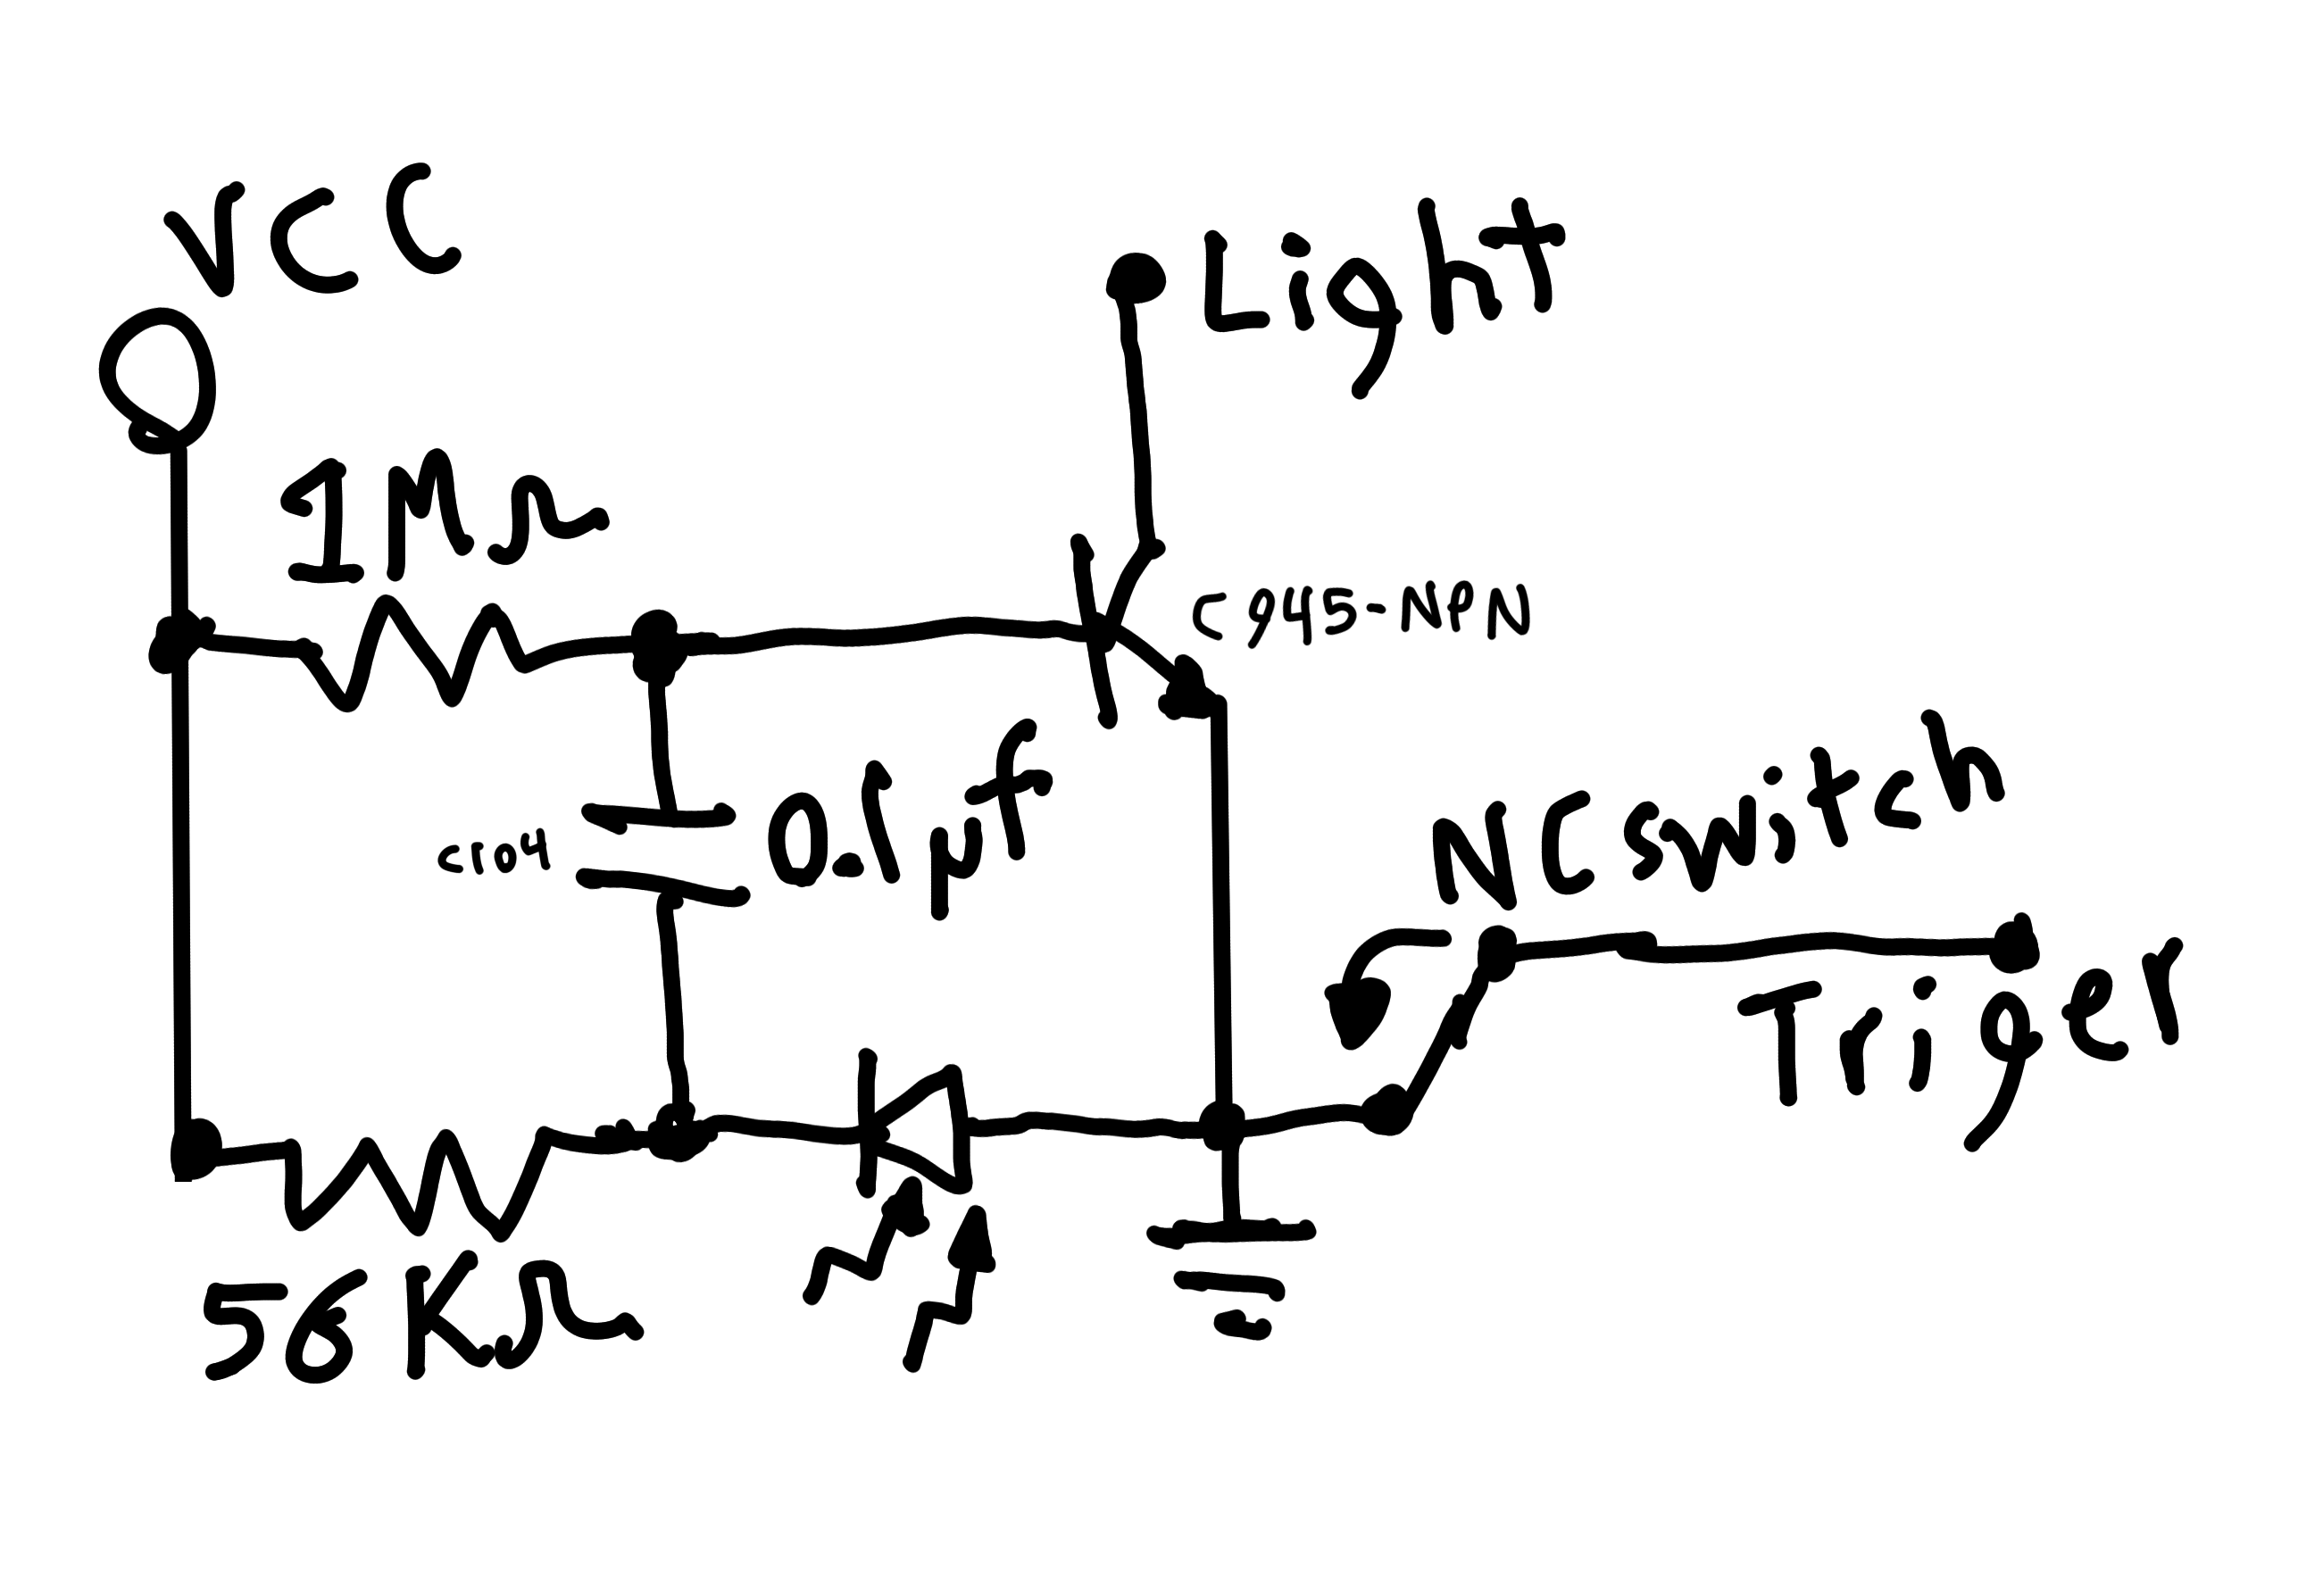 VCC
Light
1MΩ
C945-NPN
C104
0.1µf
NCswitch
Triger
56KΩ